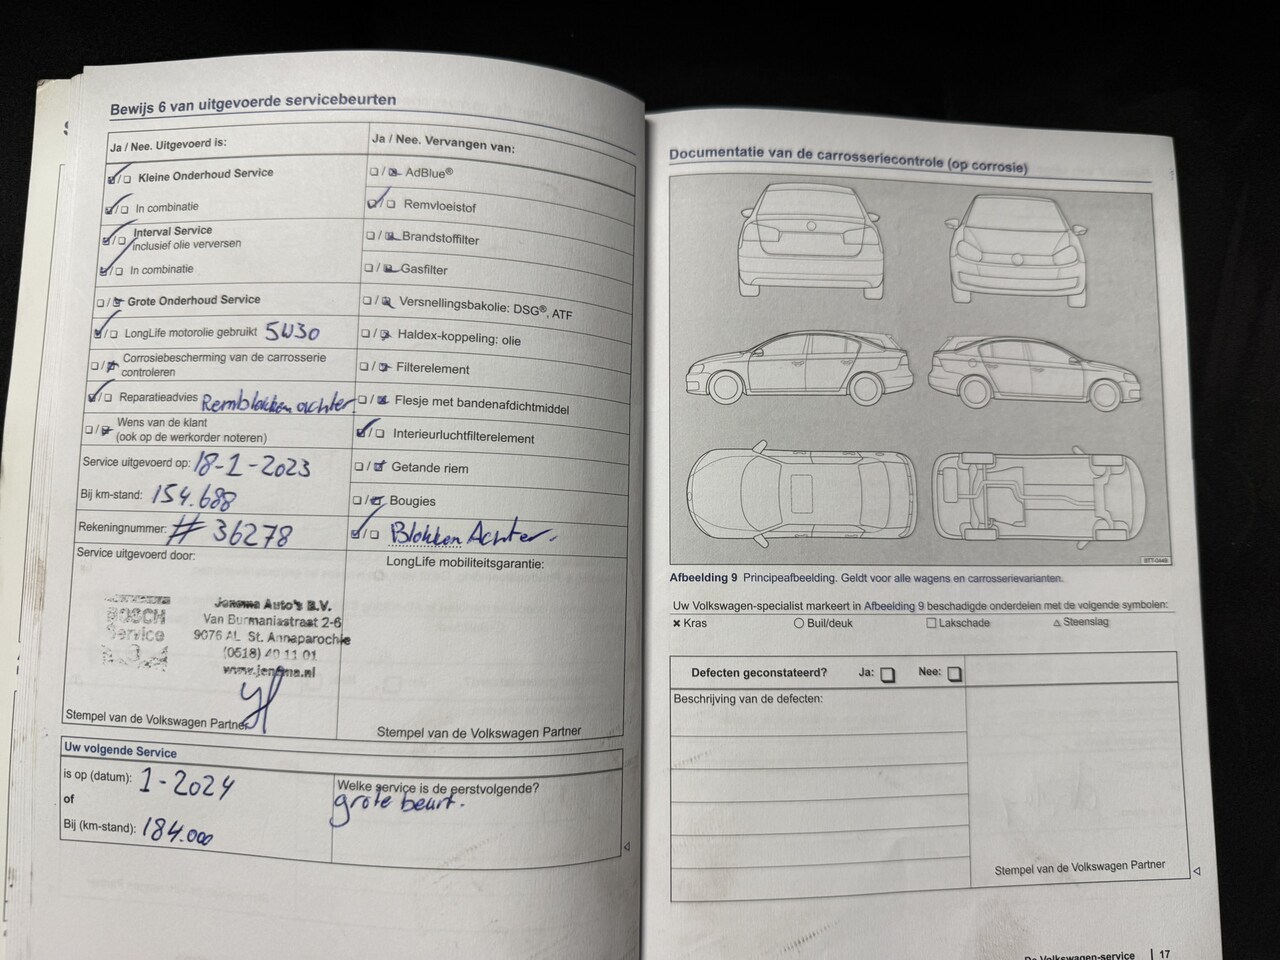 Bewijs 6 van uitgevoerde servicebeurten
Ja / Nee. Uitgevoerd is:
Kleine Onderhoud Service
In combinatie
Interval Service
inclusief olie verversen
In combinatie
Grote Onderhoud Service
LongLife motorolie gebruikt 5W30
Corrosiebescherming van de carrosserie
controleren
Reparatieadvies Remblokken achter
Wens van de klant
(ook op de werkorder noteren)
Service uitgevoerd op: 18-1-2023
Bij km-stand: 154.688
Rekeningnummer: # 36278
Service uitgevoerd door:
BOSCH
Service
Jensma Auto's B.V.
Van Burmaniastraat 2-6
9076 AL St. Annaparochie
(0518) 40 11 01
www.jensma.nl
Stempel van de Volkswagen Partner
Ja / Nee. Vervangen van:
AdBlue®
Remvloeistof
Brandstoffilter
Gasfilter
Versnellingsbakolie: DSG®, ATF
Haldex-koppeling: olie
Filterelement
Flesje met bandenafdichtmiddel
Interieurluchtfilterelement
Getande riem
Bougies
Blokken Achter.
LongLife mobiliteitsgarantie:
Stempel van de Volkswagen Partner
Uw volgende Service
is op (datum): 1-2024
of
Bij (km-stand): 184.000
Welke service is de eerstvolgende?
grote beurt.
Documentatie van de carrosseriecontrole (op corrosie)
Afbeelding 9 Principeafbeelding. Geldt voor alle wagens en carrosserievarianten.
Uw Volkswagen-specialist markeert in Afbeelding 9 beschadigde onderdelen met de volgende symbolen:
× Kras ○ Buil/deuk □ Lakschade △ Steenslag
Defecten geconstateerd? Ja: Nee:
Beschrijving van de defecten:
Stempel van de Volkswagen Partner
De Volkswagen-service 17